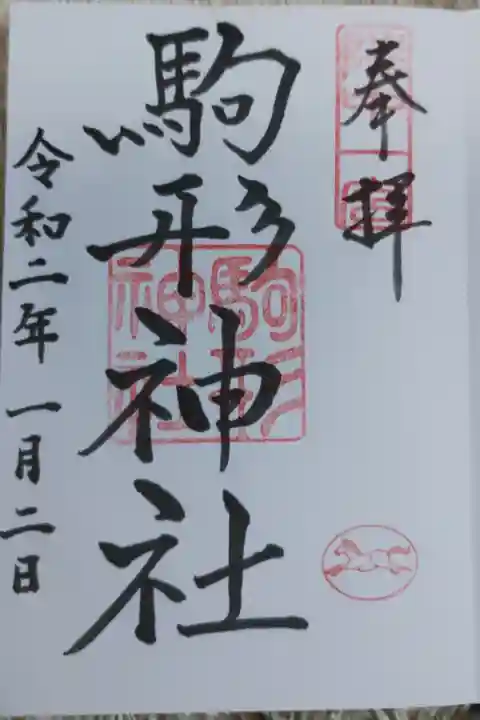 奉拝
駒形神社
駒形神社
令和二年 一月二日